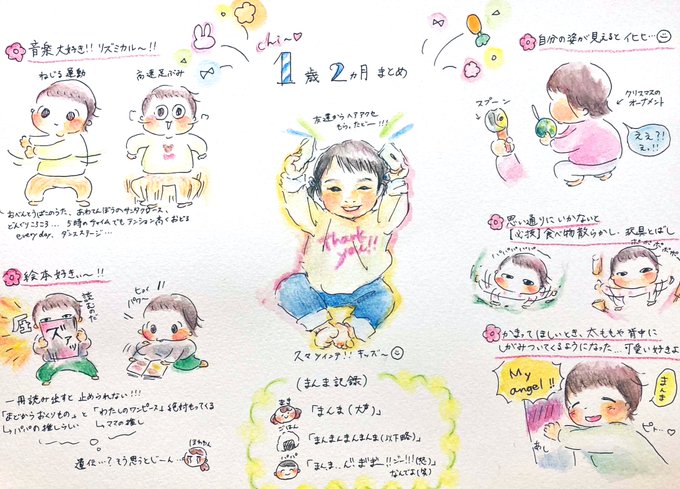 chi〜♡
1歳2ヵ月 まとめ
音楽大好き!! リズミカル〜!!
ねじる運動
高速足ぶみ
おべんとうばこのうた、あわてんぼうのサンタクロース、
どんぐりころころ… 5時のチャイムでもテンション高くおどる
every day, ダンスステージ…
絵本好きぃ〜!!
読むのだ
ズアッ
圧
ヒョイ
パクー
一冊読み出すと止められない!!!
「まどからおくりもの」と「わたしのワンピース」絶対もってくる
↳パパの推しらしい
↳ママの推し
遺伝…? そう思うとじーん…
ほわわん
友達からヘアアクセ
もらったどー!!!
thank
you!!
スマァイァ!! キッズ〜
(まんま記録)
まま
「まんま(大声)」
ごはん
「まんまんまんまんま(以下略)」
パパ
なんでよ(笑)
自分の姿が見えると イヒヒ…
スプーン
クリスマスの
オーナメント
ええ?!
え!!
思い通りにいかないと
【必技】食べ物散らかし、玩具とばし
パパパパパ
ポポポポポポ
かまってほしいとき、太ももや背中に
しがみついてくるようになった… 可愛い好きよ
My
angel!!
まんま
あし
ピト…♡